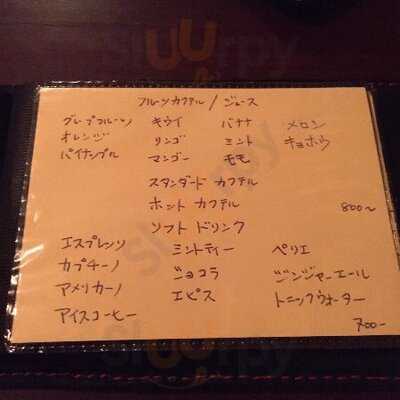 フルーツカクテル / ジュース
グレープフルーツ キウイ バナナ メロン
オレンジ リンゴ ミント キョホウ
パイナップル マンゴー モモ
スタンダード カクテル
ホット カクテル 800〜
ソフト ドリンク
エスプレッソ ミントティー ペリエ
カプチーノ ショコラ ジンジャーエール
アメリカーノ エピス トニックウォーター
アイスコーヒー 700-